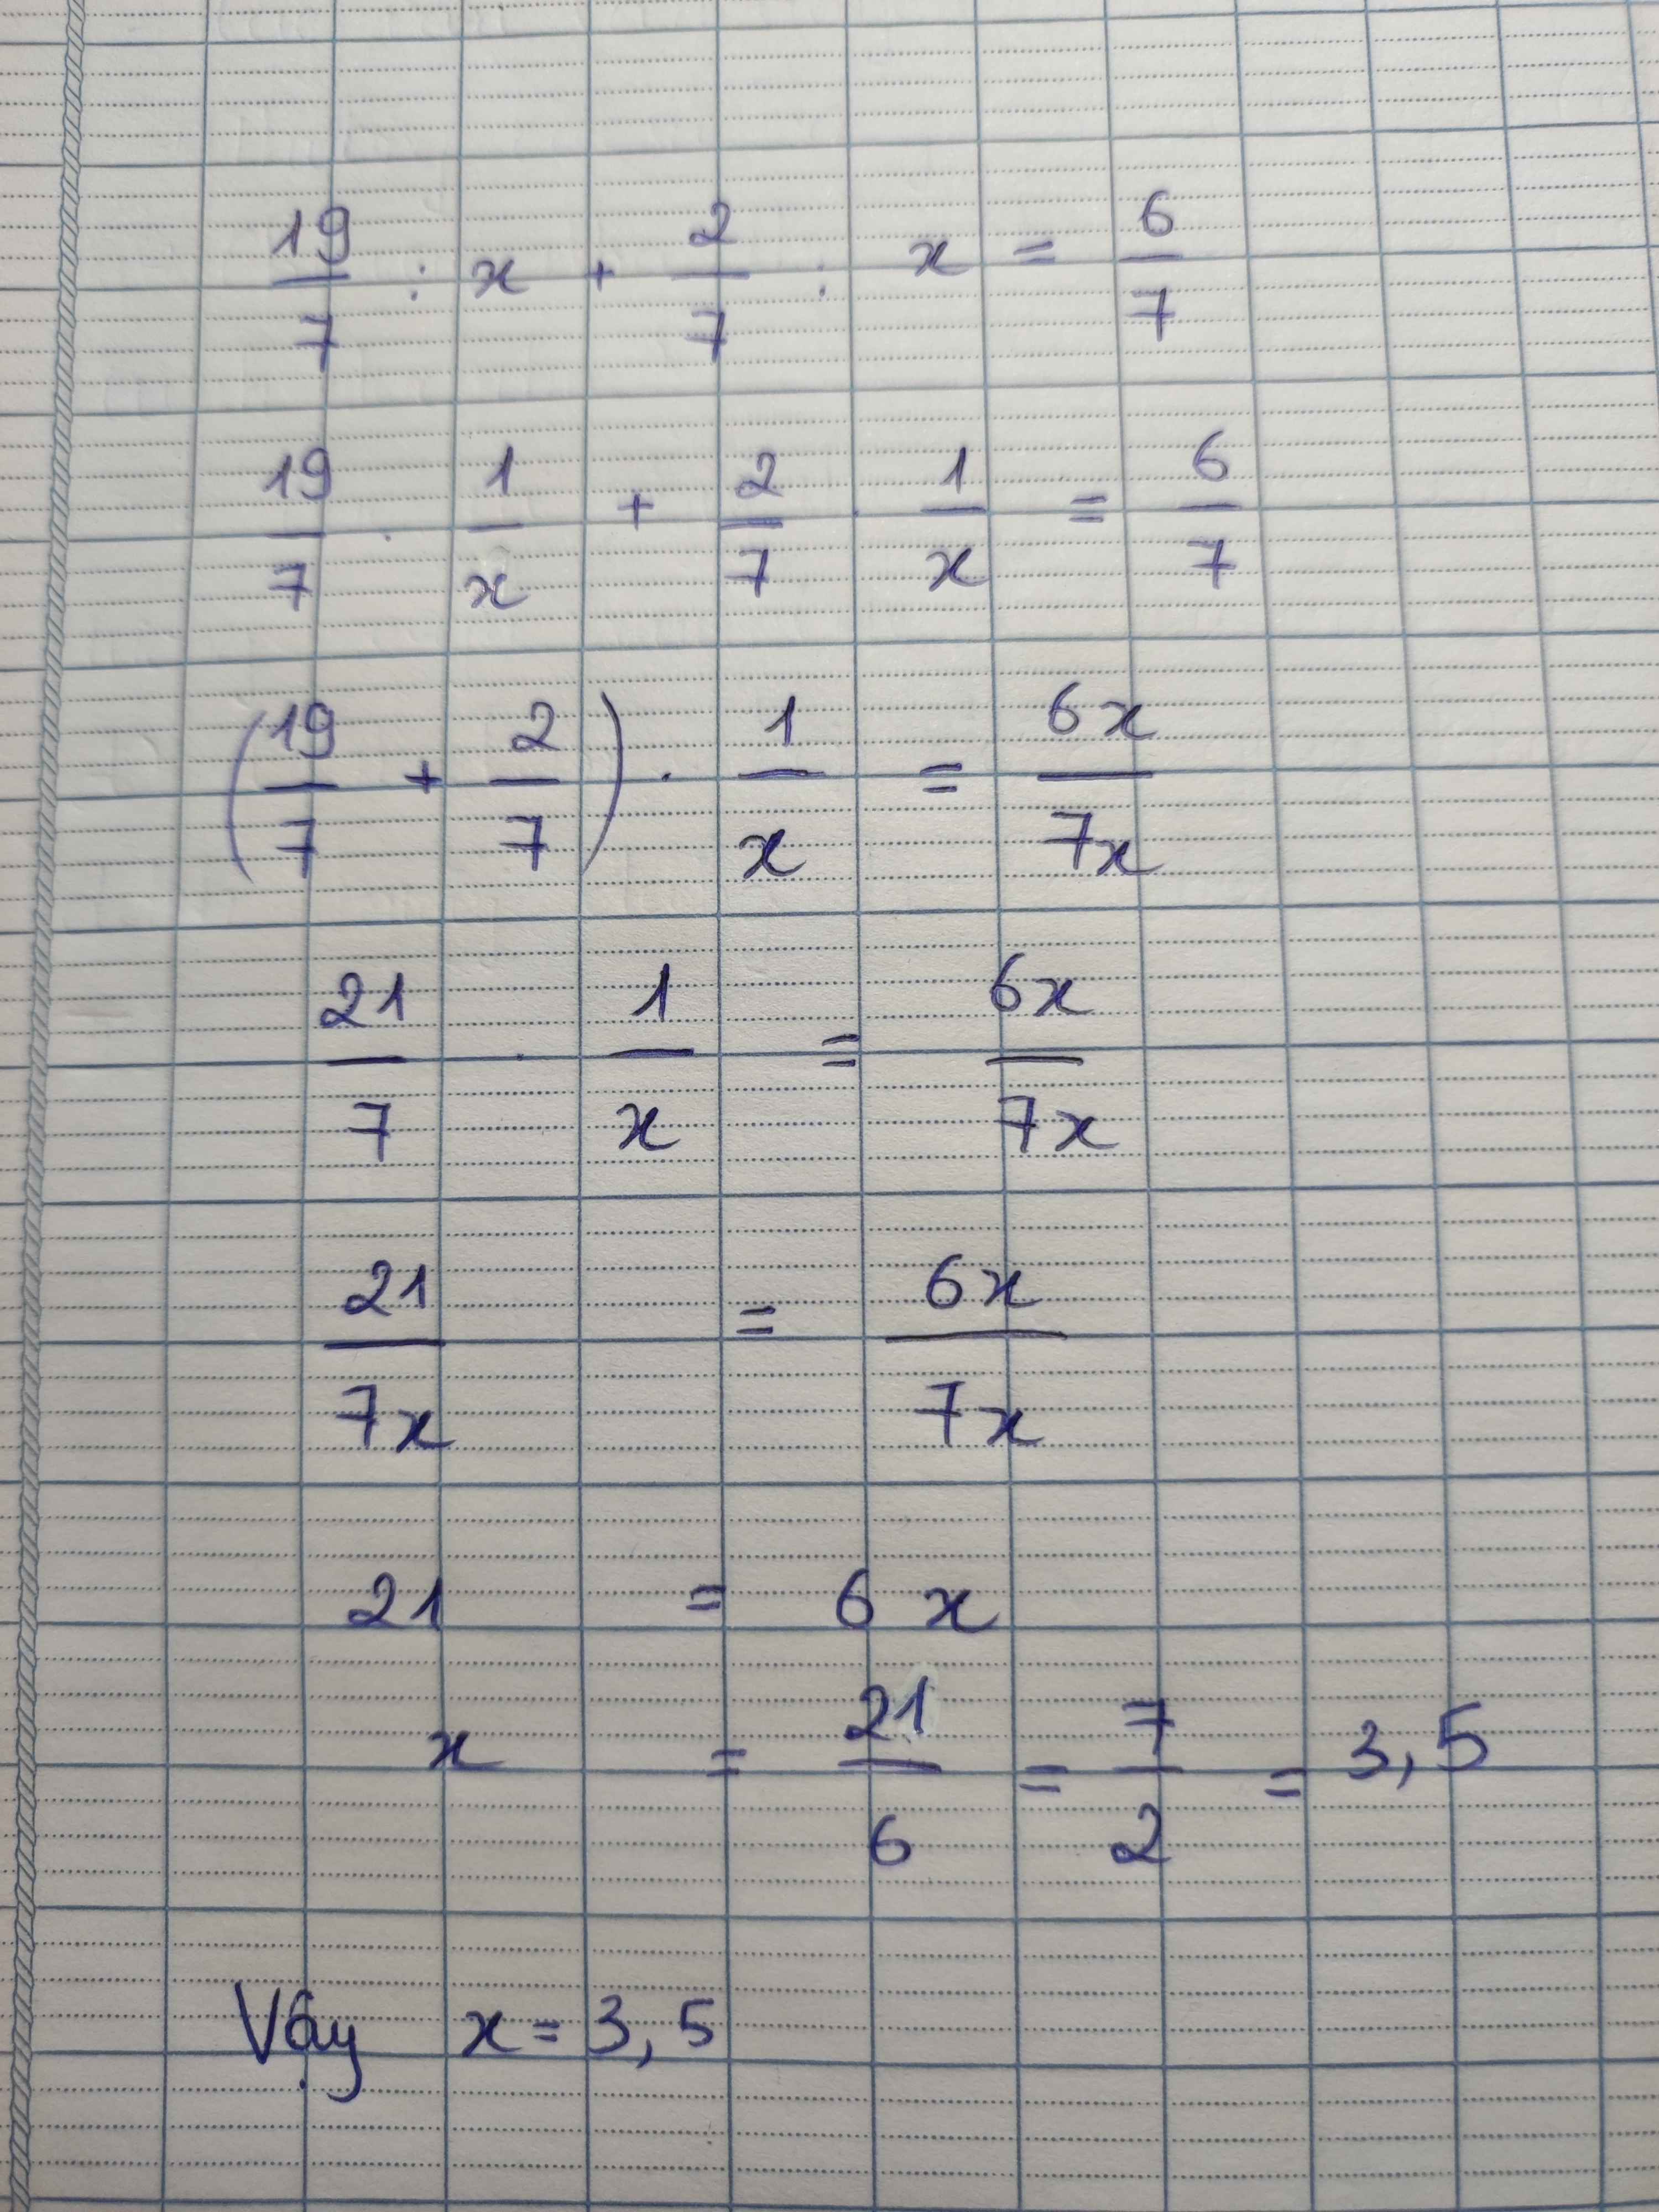 19/7 : x + 2/7 : x = 6/7
19/7 . 1/x + 2/7 . 1/x = 6/7
(19/7 + 2/7) . 1/x = 6x/7x
21/7 . 1/x = 6x/7x
21/7x = 6x/7x
21 = 6x
x = 21/6 = 7/2 = 3,5
Vậy x = 3,5